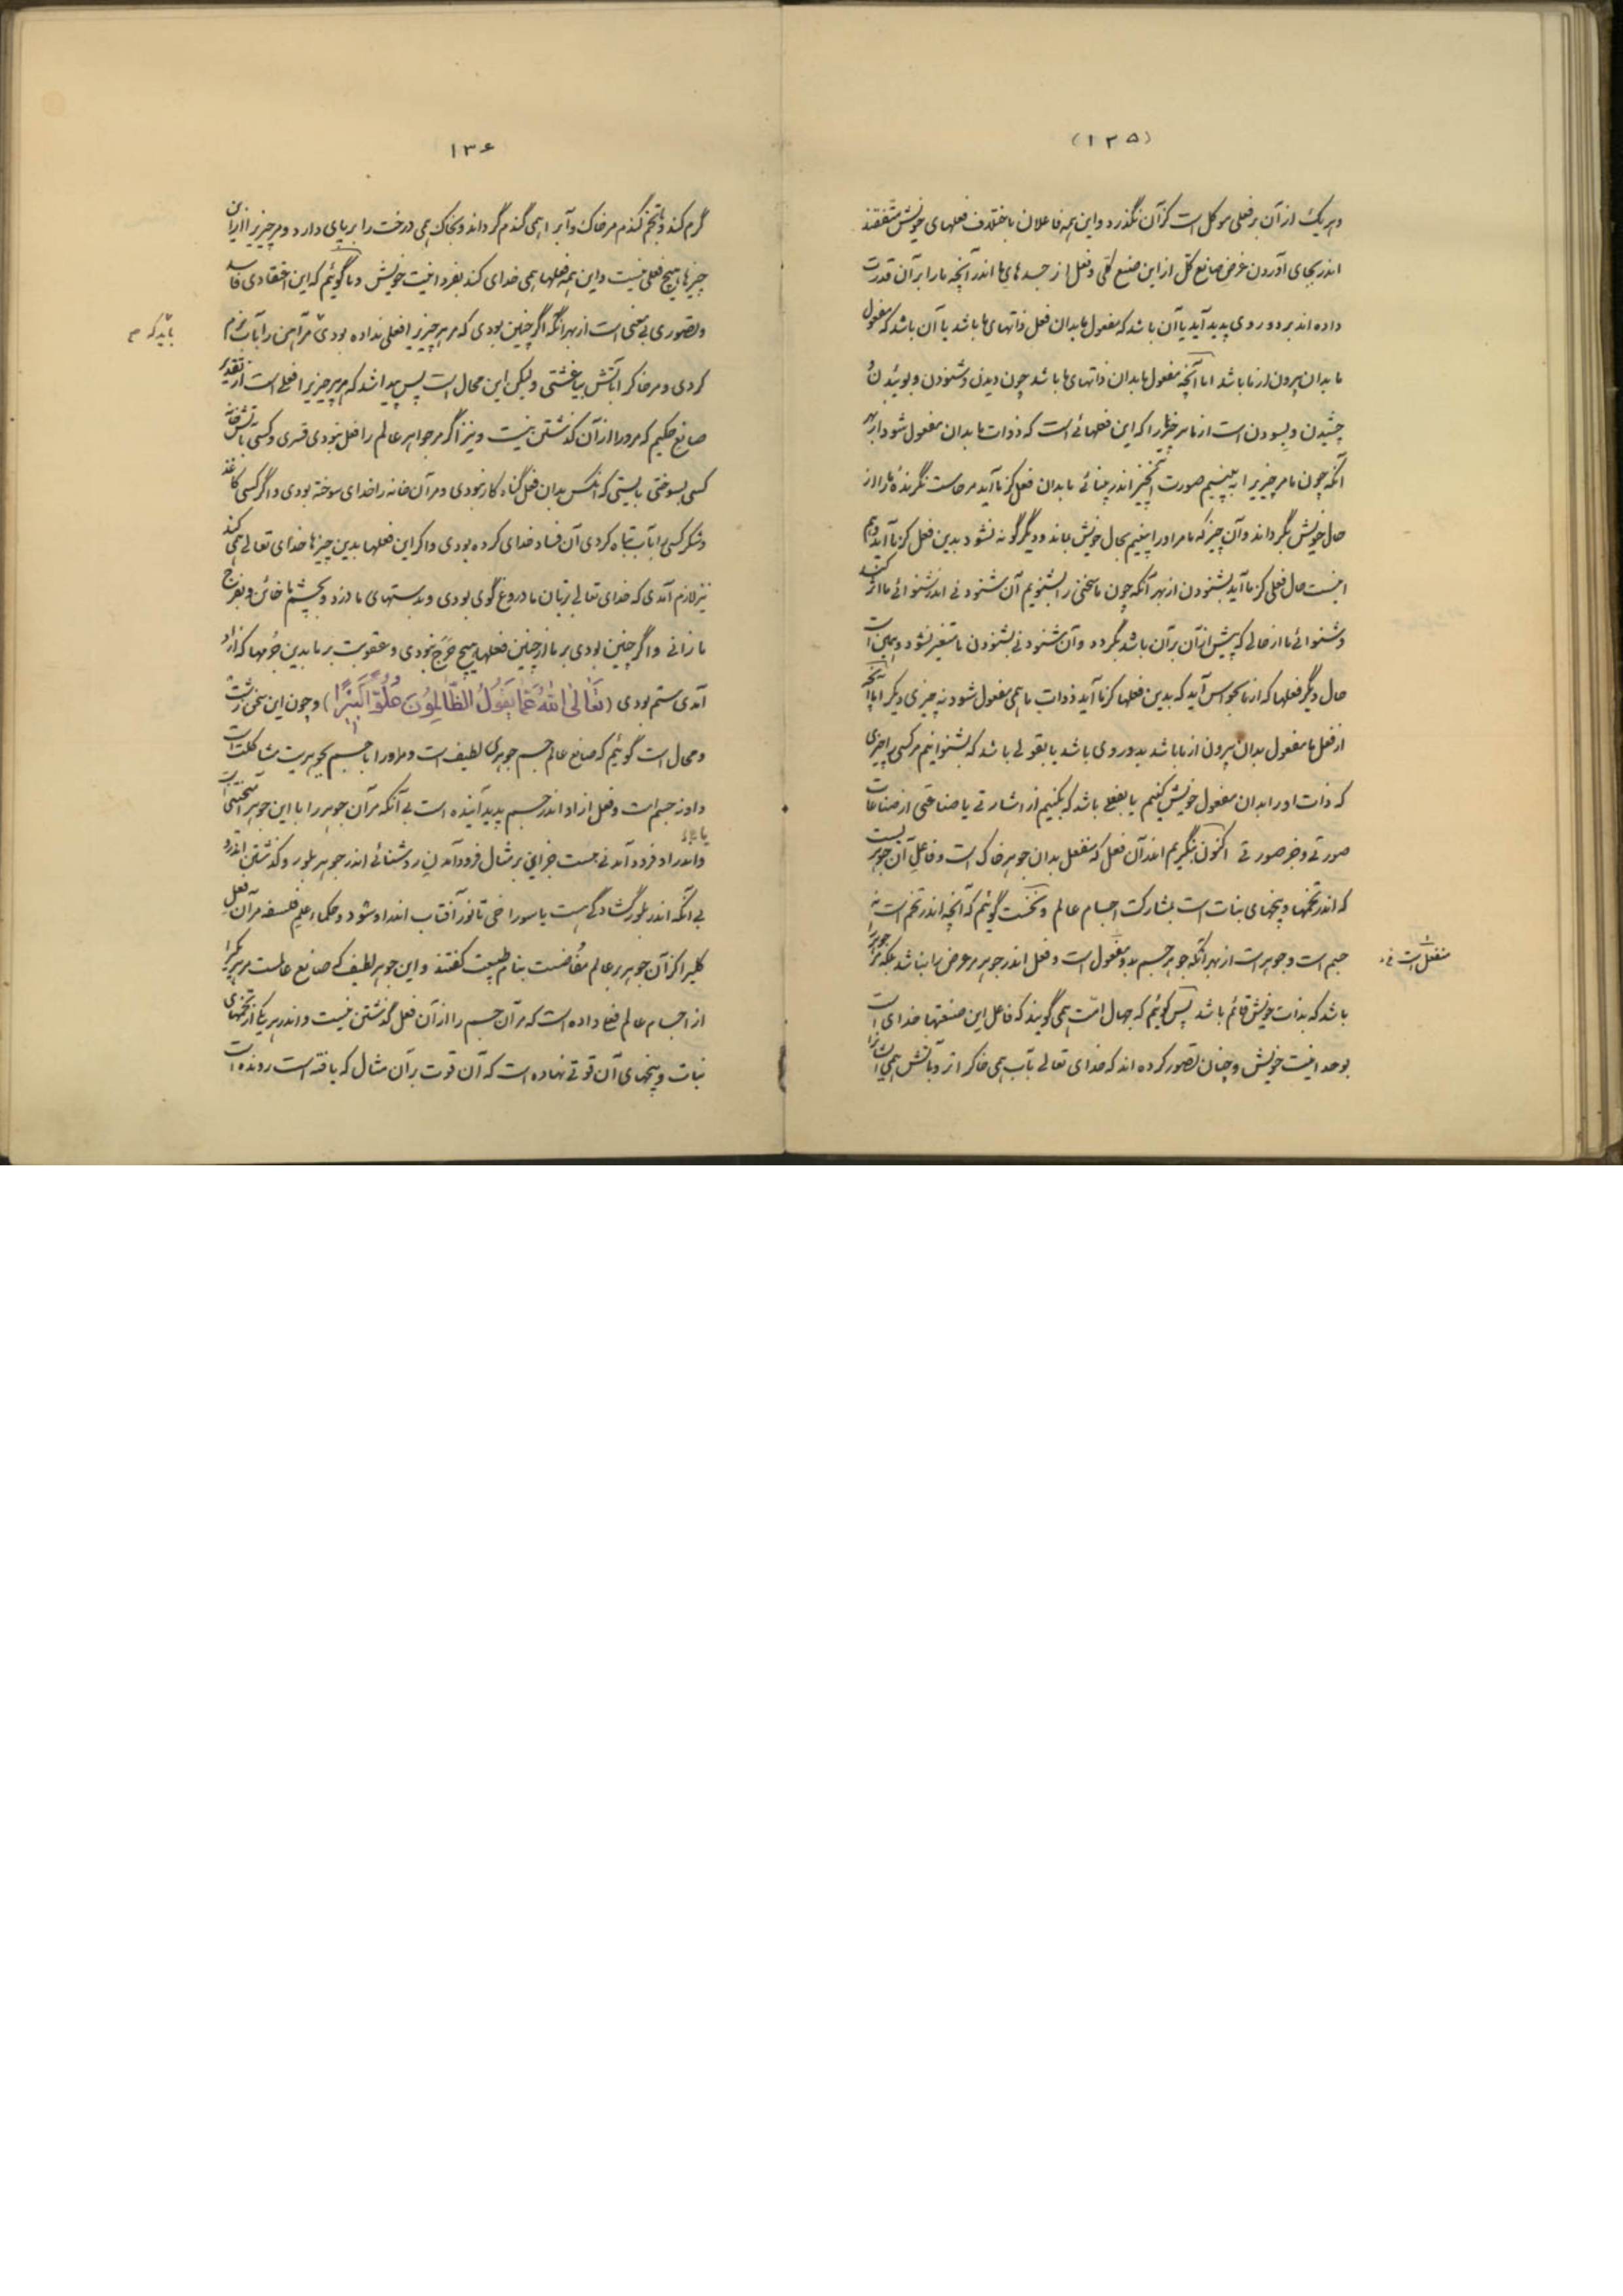 (۱۳۵)
و هر یک از آن بر فعلی موکل است کز آن نگذرد و این همه فاعلان باختلاف فعلهای خویش متفقند
اندر بجای آوردن غرض صانع کل از این صنع کلی و فعل از جسدهای ما اندر آنچه ما را بر آن قدرت
داده اند بر دو روی پدید آید یا آن باشد که مفعول ما بدان فعل ذاتهای ما باشد یا آن باشد که مفعول
ما بدان بیرون از ما باشد اما آنچه مفعول ما بدان ذاتهای ما باشد چون دیدن و شنودن و بوئیدن و
چشیدن و بسودن است از ما مر چیزها را که این فعلهائے است که ذوات ما بدان مفعول شود از بهر
آنکه چون ما مر چیزیرا به بینیم صورت آنچیز اندر بینائے ما بدان فعل کز ما آید مر حاست نگرنده ما را از
حال خویش بگرداند و آن چیز که ما مر او را بینیم بحال خویش بماند و دیگرگونه نشود بدین فعل کز ما آید و هم
اینست حال فعلی کز ما آید بشنودن از بهر آنکه چون ما سخنی را بشنویم آن شنودنی اندر شنوائے ما اثر کند
و شنوائے ما از حالی که پیش از آن بر آن باشد بگردد و آن شنودنی بشنودن ما متغیر نشود و همین است
حال دیگر فعلها که از ما بحواس آید که بدین فعلها کز ما آید ذوات ما همی مفعول شود نه چیزی دیگر اما آنچه
از فعل ما مفعول بدان بیرون از ما باشد بدو روی باشد یا بقولی باشد که بشنوانیم مر کسی را چیزی
که ذات او را بدان مفعول خویش کنیم یا بفعلی باشد که بکنیم از اشارتی یا صناعتی از صناعات
صورتی و غیر صورتی اکنون بنگریم اندر آن فعل که منفعل بدان جوهر خاک است و فاعل آن جوهریست
که اندر تخمها و بیخهای نبات است بمشارکت اجسام عالم و نخست گوئیم که آنچه اندر تخم است نه
جسم است و جوهر است از بهر آنکه جوهر جسم بدو مفعول است و فعل اندر جوهر مر عرض را نباشد بلکه مر جوهر را
منفعل است
باشد که بذات خویش قائم باشد پس گوئیم که جهال امت همی گویند که فاعل این صنعتها خدای است
بوحدانیت خویش و چنان تصور کرده اند که خدای تعالی بآب همی خاک را تر و بآتش همی آب را
۱۳۶
گرم کند و بتخم گندم مر خاک و آب را همی گندم گرداند و بخاک همی درخت را بر پای دارد و مر چیزیرا از این
چیزها هیچ فعلی نیست و این همه فعلها همی خدای کند بفردانیت خویش و ما گوئیم که این اعتقادی فاسد
و تصوری بی معنی است از بهر آنکه اگر چنین بودی که مر هر چیزیرا فعلی نداده بودی مر آهن را بآب نرم
باید که
کردی و مر خاک را بآتش بیاغشتی ولیکن این محال است پس پیدا شد که مر هر چیزیرا فعلی است از تقدیر
صانع حکیم که مر او را از آن گذشتن نیست و نیز اگر مر جواهر عالم را فعل نبودی قسری و کسی بآتش خانه
کسی بسوختی بایستی که آنکس بدان فعل گناه کار نبودی و مر آن خانه را خدای سوخته بودی و اگر کسی کاغذ
و شکر کسی را بآب تباه کردی آن فساد خدای کرده بودی و اگر این فعلها بدین چیزها خدای تعالی همی کند
نیز لازم آمدی که خدای تعالی بزبان ما دروغ گوی بودی و بدستهای ما دزد و بچشم ما خائن و بفرج
ما زانی و اگر چنین بودی بر ما از چنین فعلها هیچ حرج نبودی و عقوبت بر ما بدین جرمها که از او
آمدی ستم بودی (تعالى الله عما يقول الظالمون علوا كبيرا) و چون این سخن زشت
و محال است گوئیم که صانع عالم جسم جوهری لطیف است و مر او را با جسم بجوهریت مشاکلت است
و او نه جسم است و فعل از او اندر جسم پدید آینده است بی آنکه مر آن جوهر را با این جوهر آمیختنی است
و اندر او فرود آمدنی جست جز این بر مثال فرود آمدن روشنائی اندر جوهر بلور و گذشتن اندرو
بی آنکه اندر بلور گشادگی هست یا سوراخی تا نور آفتاب اندر او شود و حکماء علم فلسفه مر آن فعل
کلی را کز آن جوهر بر عالم مفاضست بنام طبیعت گفتند و این جوهر لطیف که صانع عالمست مر هر یکی را
از اجسام عالم فعلی داده است که مر آن جسم را از آن فعل گذشتن نیست و اندر هر یکی از تخمهای
نبات و بیخهای آن قوتی نهاده است که آن قوت بر آن مثال که یافته است رونده است